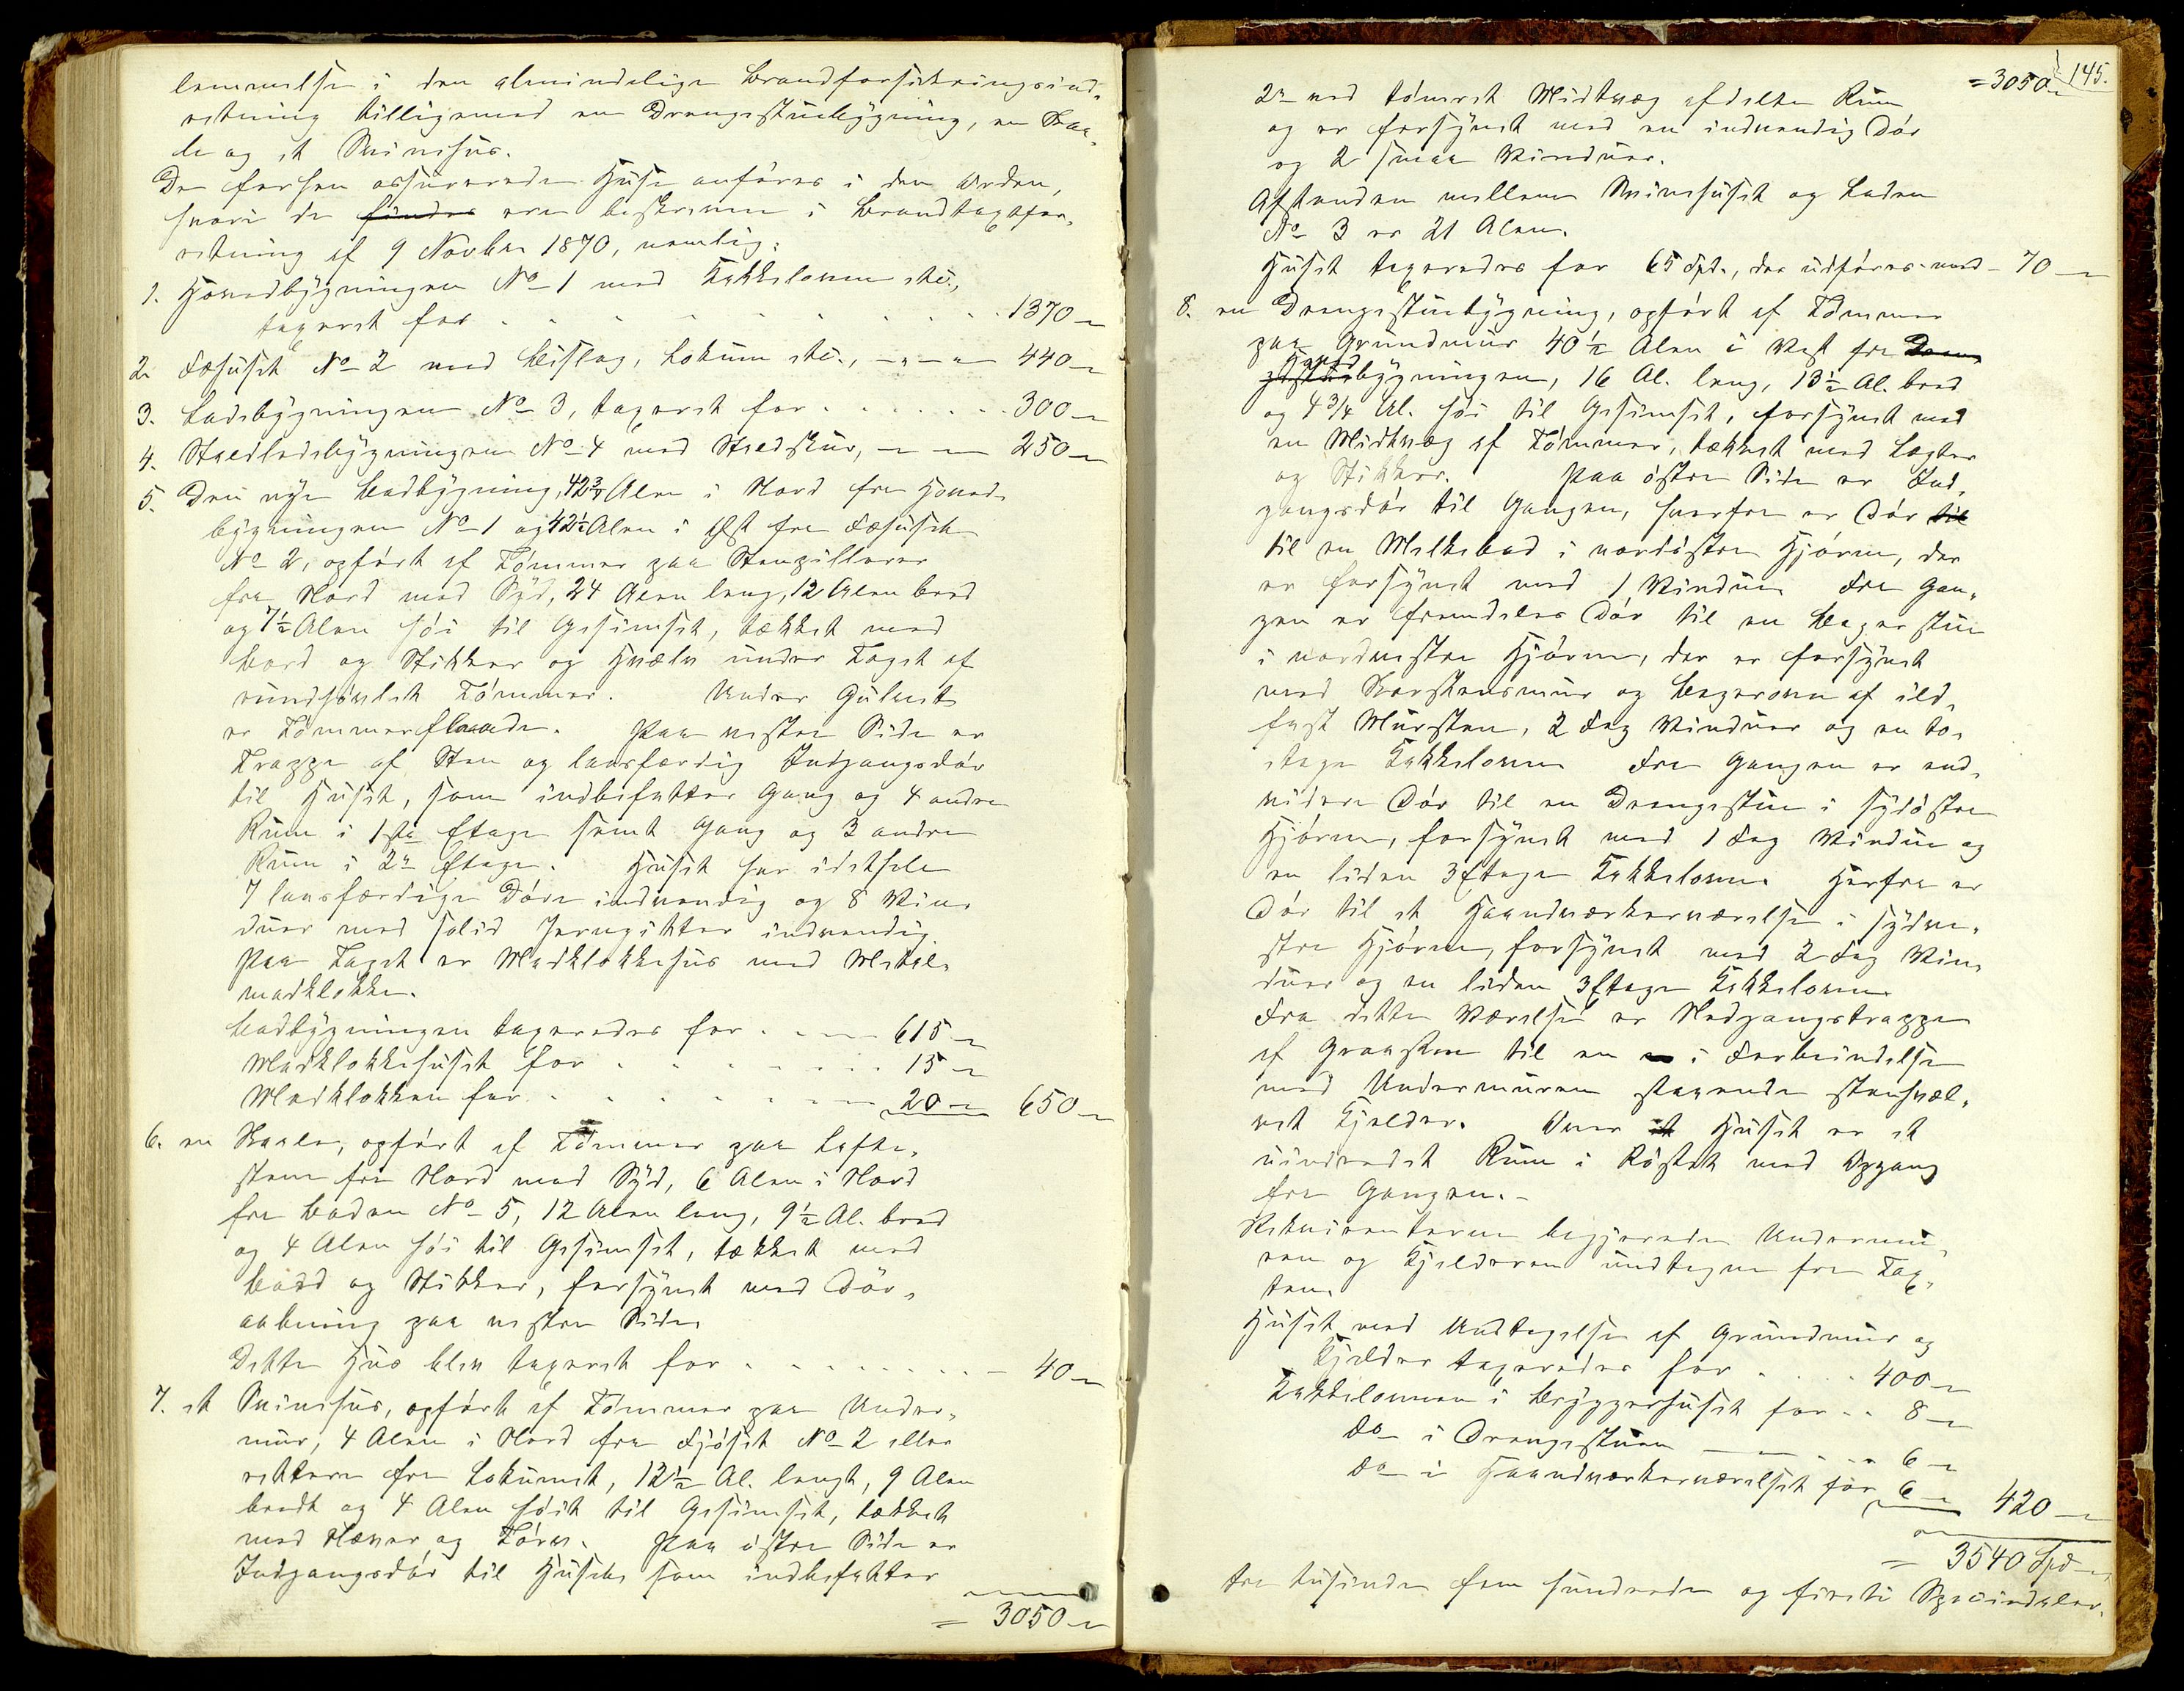 lemmelse i den almindelige Brandforsikringsind-
retning tilligemed en Drengestuebygning, en Skaa-
le og et Svinehus.
De forhen assurerede Huse anføres i den Orden,
hvori de findes ere beskrevne i Brandtaxtfor-
retning af 9 Novber 1870, nemlig:
1. Hovedbygningen No 1 med Kakkelovne etc.,
taxeret for . . . . . . . . . 1370 „
2. Fæhuset No 2 med Bislag, Lokum etc., — „ — „ 440 „
3. Ladebygningen No 3, taxeret for . . . . . . 300 „
4. Staldladebygningen No 4 med Stedskur, — „ — 250 „
5. Den nye Badbygning, 42¾ Alen i Nord fra Hoved-
bygningen No 1 og 42½ Alen i Øst fra Fæhuset
No 2, opført af Tømmer paa Stenpillarer
fra Nord mod Syd, 24 Alen lang, 12 Alen bred
og 7½ Alen høi til Gesimset, tækket med
Bord og Stikker og Hvælv under Taget af
rundhøvlet Tømmer. Under Gulvet
er Tømmerflaade. Paa vestre Side er
Trappe af Sten og laasfærdig Indgangsdør
til Huset, som indbefatter Gang og 4 andre
Rum i 1ste Etage samt Gang og 3 andre
Rum i 2n Etage. Huset har idethele
7 laasfærdige Døre indvendig og 8 Vin-
duer med solid Jerngitter indvendig.
Paa Taget er Madklokkehus med Metal-
madklokke.
Badbygningen taxeredes for . . . 615 „
Madklokkehuset for . . . . . . 15 „
Madklokken for . . . . . . . 20 „ 650 „
6. en Skaale, opført af Tømmer paa Lafte-
stene fra Nord mod Syd, 6 Alen i Nord
fra Baden No 5, 12 Alen lang, 9½ Al. bred
og 4 Alen høi til Gesimset, tækket med
Bord og Stikker, forsynet med Dør-
aabning paa vestre Side.
Dette Hus blev taxeret for . . . . . . . 40 „
7. et Svinehus, opført af Tømmer paa Under-
mur, 4 Alen i Nord fra Fjøset No 2 eller
rettere fra Lokumet, 12½ Al. langt, 9 Alen
bredt og 4 Alen høit til Gesimset, tækket
med Næver og Tørv. Paa østre Side er
Indgangsdør til Huset, som indbefatter
= 3050 „
= 3050 „ 145.
2n ved tømret Midtvæg afdelte Rum
og er forsynet med en indvendig Dør
og 2 smaa Vinduer.
Afstanden mellem Svinehuset og Laden
No 3 er 21 Alen.
Huset taxeredes for 65 Spd., der udføres med — 70 „
8. en Drengestuebygning, opført af Tømmer
paa Grundmur 40½ Alen i Vest fra
Hovedbygningen, 16 Al. lang, 13½ Al. bred
og 4¾ Al. høi til Gesimset, forsynet med
en Midtvæg af Tømmer, tækket med Lægter
og Stikker. Paa østre Side er Ind-
gangsdør til Gangen, hvorfra er Dør til
til en Melkebod i nordøstre Hjørne, der
er forsynet med 1 Vindue. Fra Gan-
gen er fremdeles Dør til en Bagerstue
i nordvestre Hjørne, der er forsynet
med Skorstensmur og Bagerovn af ild-
fast Mursten, 2 Fag Vinduer og en to-
etages Kakkelovn. Fra Gangen er end-
videre Dør til en Drengestue i sydøstre
Hjørne, forsynet med 1 Fag Vindue og
en liden 3 Etages Kakkelovn. Herfra er
Dør til et Haandværkerværelse i sydve-
stre Hjørne, forsynet med 2 Fag Vin-
duer og en liden 3 Etages Kakkelovn.
Fra dette Værelse er Nedgangstrappe
af Graasten til en i Forbindelse
med Undermuren staaende stenhvæl-
vet Kjelder. Over et Huset er et
uindredet Rum i Røstet med Opgang
fra Gangen. –
Rekvirenterne begjærede Undermu-
ren og Kjelderen undtagne fra Tax-
ten.
Huset med Undtagelse af Grundmur og
Kjelder taxeredes for . . . . 400 „
Kakkelovnen i Bryggerhuset for . . 8 „
do „ i Drengestuen — „ — . . 6 „
do „ i Haandværkerværelset for 6 „ 420 „
= 3540 Spd „
tre tusinde fem hundrede og firti Speciedaler.